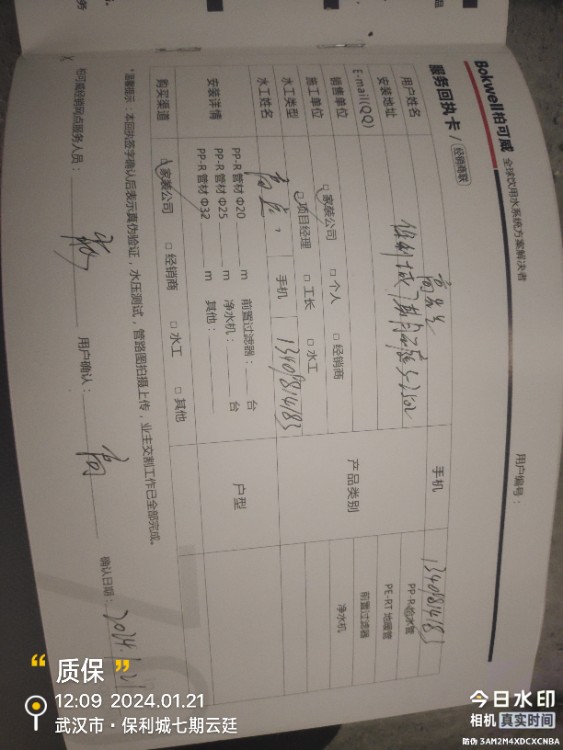 Bokwell柏可威 全球饮用水系统方案解决者
用户编号：
服务回执卡 / 经销商联
用户姓名 手机
安装地址
E-mail(QQ)
产品类别
PP-R给水管
PE-RT地暖管
前置过滤器
净水机
销售单位 □家装公司 □个人 □经销商
施工单位 □项目经理 □工长 □水工
水工类型
水工姓名 手机
安装详情 PP-R管材 Φ20 m 前置过滤器： 台
PP-R管材 Φ25 m 净水机： 台
PP-R管材 Φ32 m 其他：
户型
购买渠道 □家装公司 □经销商 □水工 □其他
*温馨提示：本回执签字确认后表示真伪验证，水压测试，管路图拍摄上传，业主交割工作已全部完成。
柏可威经销网点服务人员： 用户确认： 确认日期：2024.1.21
“质保”
12:09 2024.01.21
武汉市·保利城七期云廷
今日水印
相机 真实时间
防伪 3AM2M4XDCXCNBA